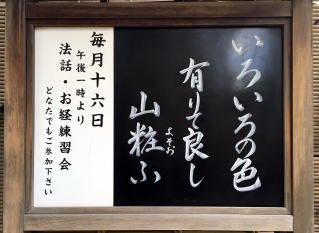 いろいろの色
有りて良し
山粧ふ
よそお
毎月十六日
午後一時より
法話・お経練習会
どなたでもご参加下さい